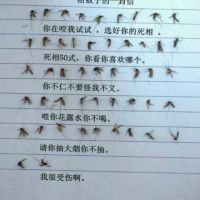 给蚊子的一封信
你在咬我试试，选好你的死相。
死相50式，你看你喜欢哪个。
你不仁不要怪我不义。
喂你花露水你不喝。
请你抽大烟你不抽。
我很受伤啊。